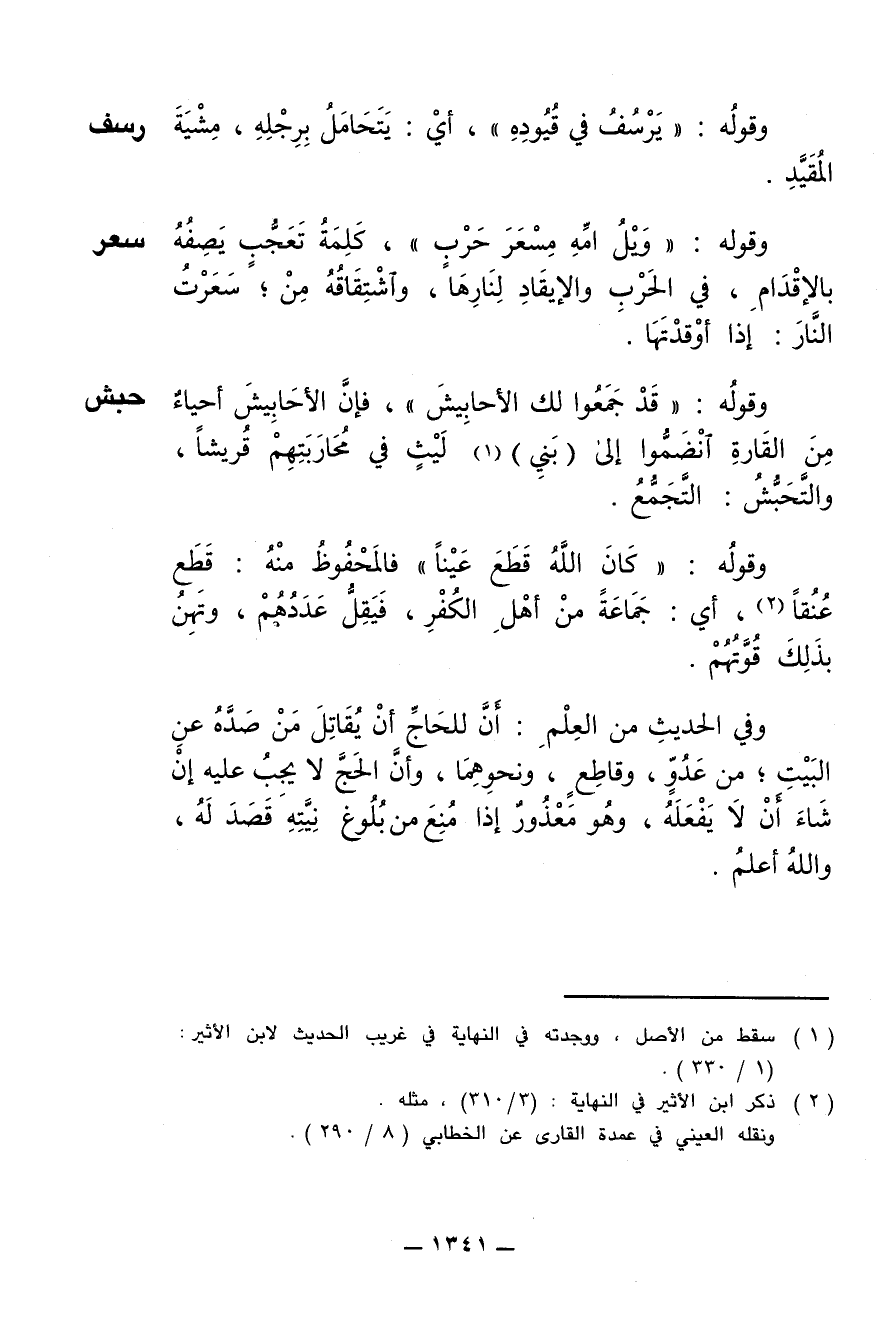 وقولُه : « يَرْسُفُ في قُيُودِهِ » ، أيْ : يَتَحَامَلُ بِرِجْلِهِ ، مِشْيَةَ رسف
المُقَيَّدِ .
وقوله : « وَيْلُ امِّهِ مِسْعَرَ حَرْبٍ » ، كَلِمَةُ تَعَجُّبٍ يَصِفُهُ سعر
بالإقْدَامِ ، في الحَرْبِ والإيقَادِ لِنَارِهَا ، وٱشْتِقَاقُهُ مِنْ ؛ سَعَرْتُ
النَّارَ : إذا أوْقدْتَهَا .
وقولُه : « قَدْ جَمَعُوا لك الأحابِيشَ » ، فإنَّ الأحَابِيشَ أحياءٌ حبش
مِنَ القَارةِ ٱنْضَمُّوا إلىٰ ( بَنِي ) (١) لَيْثٍ في مُحَارَبَتِهِمْ قُريشاً ،
والتَّحَبُّشُ : التَّجَمُّعُ .
وقولُه : « كَانَ اللَّهُ قَطَعَ عَيْناً » فالمَحْفُوظُ منْهُ : قَطَع
عُنُقاً (٢) ، أي : جَمَاعَةً منْ أهْلِ الكُفْرِ ، فَيَقِلُّ عَدَدُهُمْ ، وتَهِنُ
بذَلِكَ قُوَّتُهُمْ .
وفي الحديثِ من العِلْمِ : أَنَّ للحَاجِّ أنْ يُقَاتِلَ مَنْ صَدَّهُ عنِ
البَيْتِ ؛ من عَدُوٍّ ، وقاطِعٍ ، ونحوِهِمَا ، وأنَّ الحَجَّ لا يجِبُ عليه إنْ
شَاءَ أَنْ لَا يَفْعَلَهُ ، وهُو مَعْذُورٌ إذا مُنِعَ من بُلُوغِ نِيَّتِهِ قَصَدَ لَهُ ،
واللهُ أعلمُ .
( ١ ) سقط من الأصل ، ووجدته في النهاية في غريب الحديث لابن الأثير :
(١ / ٣٣٠ ) .
( ٢ ) ذكر ابن الأثير في النهاية : (٣/ ٣١٠) ، مثله .
ونقله العيني في عمدة القارى عن الخطابي ( ٨ / ٢٩٠ ) .
— ١٣٤١ —